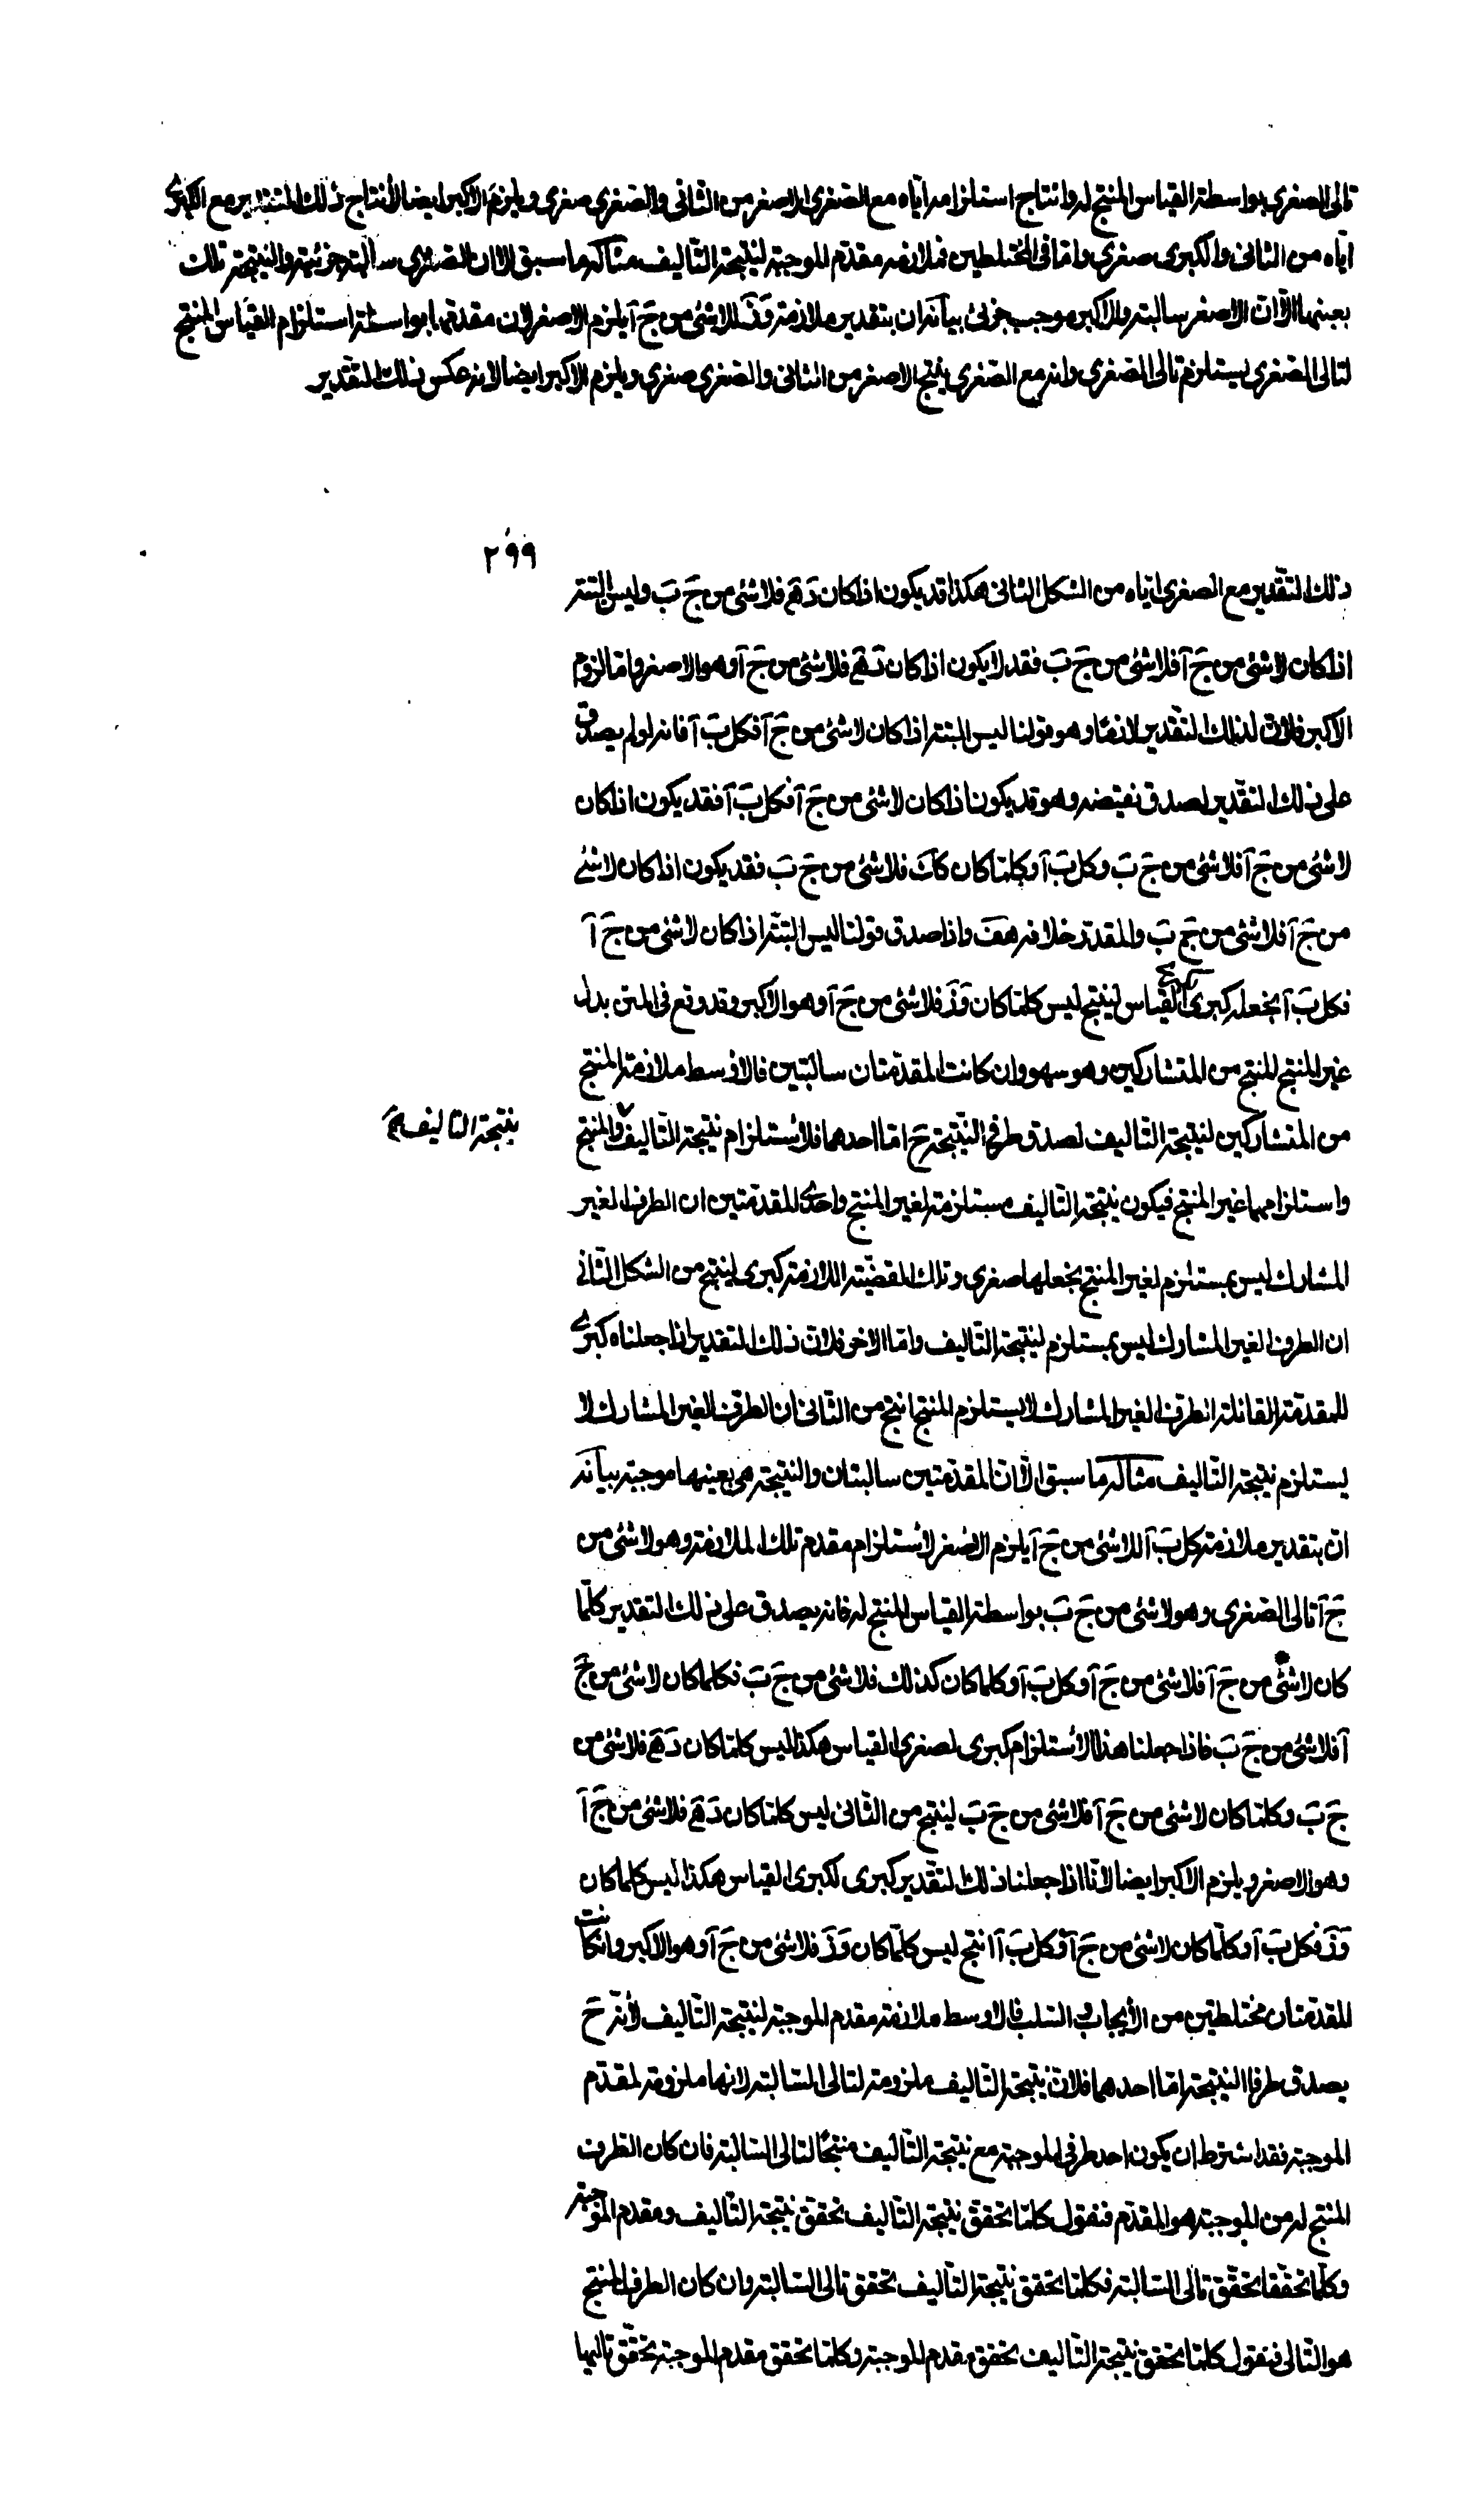 تالى الصغرى بواسطة القياس المنتج له وانتاج استلزامه اياه مع الصغرى الاصغر من الثانى والصغرى صغرى ويلزم الاكبر ايضا لانتاج ذلك التقدير مع الكبرى
اياه من الثانى والكبرى صغرى واما فى المختلطين فملازمة مقدم الموجبة لنتيجة التأليف مثاله ما سبق الا ان الصغرى سالبة جزئية والنتيجة تلك
بعينها الا ان الاصغر سالبة والاكبر موجب جزئى بيانه ان بتقدير ملازمة وَزَ للاشئ من جَ آ يلزم الاصغر لان مقدمها بواسطة استلزام القياس المنتج
لتالى الصغرى يستلزم تالى الصغرى وانه مع الصغرى ينتج الاصغر من الثانى والصغرى صغرى ويلزم الاكبر ايضا لانه عكس ذلك التقدير
٢٩٩
ذلك التقدير مع الصغرى اياه من الشكل الثانى هكذا قد يكون اذا كان دَ هَ فلا شئ من جَ بَ وليس البتة
اذا كان لا شئ من جَ آ فلا شئ من جَ بَ فقد لا يكون اذا كان دَ هَ فلا شئ من جَ آ وهو الاصغر واما لزوم
الاكبر فلان لذلك التقدير لازما وهو قولنا ليس البتة اذا كان لا شئ من جَ آ فكل بَ آ فانه لو لم يصدق
على ذلك التقدير لصدق نقيضه وهو قد يكون اذا كان لا شئ من جَ آ فكل بَ آ فقد يكون اذا كان
لا شئ من جَ آ فلا شئ من جَ بَ وكل بَ آ وكلما كان كك فلا شئ من جَ بَ فقد يكون اذا كان لا شئ
من جَ آ فلا شئ من جَ بَ والمقدر خلافه هف واذا صدق قولنا ليس البتة اذا كان لا شئ من جَ آ
فكل بَ آ نجعله كبرى القياس لينتج ليس كلما كان وَزَ فلا شئ من جَ آ وهو الاكبر وقد وقع فى المتن بدل
غير المنتج المنتج من المتشاركين وهو سهو وان كانت المقدمتان سالبتين فالاوسط ملازمة المنتج
من المتشاركين لنتيجة التأليف لصدق طرفى النتيجة ح اما احدهما فلاستلزام نتيجة التأليف والمنتج
نتيجة التأليف
واستلزامهما غير المنتج فيكون نتيجة التأليف مستلزمة لغير المنتج واحدى المقدمتين ان الطرف الغير
المشارك ليس بمستلزم لغير المنتج نجعلها صغرى وتلك القضية اللازمة كبرى لينتج من الشكل الثانى
ان الطرف الغير المشارك ليس بمستلزم لنتيجة التأليف واما الاخر فلان ذلك التقدير اذا جعلناه كبرى
للمقدمة القائلة الطرف الغير المشارك لا يستلزم المنتج انتج من الثانى ان الطرف الغير المشارك لا
يستلزم نتيجة التأليف مثاله ما سبق الا ان المقدمتين سالبتان والنتيجة هى بعينها موجبة بيانه
ان بتقدير ملازمة كل بَ آ للاشئ من جَ آ يلزم الاصغر لاستلزام مقدم تلك الملازمة وهو لا شئ من
جَ آ تالى الصغرى وهو لا شئ من جَ بَ بواسطة القياس المنتج له فانه يصدق على ذلك التقدير كلما
كان لا شئ من جَ آ فلا شئ من جَ آ وكل بَ آ وكلما كان كذلك فلا شئ من جَ بَ فكلما كان لا شئ من جَ
آ فلا شئ من جَ بَ فاذا جعلنا هذا الاستلزام كبرى لصغرى القياس هكذا ليس كلما كان دَ هَ فلا شئ من
جَ بَ وكلما كان لا شئ من جَ آ فلا شئ من جَ بَ لينتج من الثانى ليس كلما كان دَ هَ فلا شئ من جَ آ
وهو الاصغر ويلزم الاكبر ايضا لانا اذا جعلنا ذلك التقدير كبرى لكبرى القياس هكذا ليس كلما كان
وَزَ فكل بَ آ وكلما كان لا شئ من جَ آ فكل بَ آ انتج ليس كلما كان وَزَ فلا شئ من جَ آ وهو الاكبر وان كانت
المقدمتان مختلطتين من الايجاب والسلب فالاوسط ملازمة مقدم الموجبة لنتيجة التأليف لانه ح
يصدق طرفا النتيجة اما احدهما فلان نتيجة التأليف ملزومة لتالى السالبة لانها ملزومة لمقدم
الموجبة فقد اشترط ان يكون احد طرفى الموجبة مع نتيجة التأليف منتجا لتالى السالبة فان كان الطرف
المنتج له من الموجبة هو المقدم فنقول كلما تحقق نتيجة التأليف تحقق نتيجة التأليف ومقدم الموجبة
وكلما تحققا تحقق تالى السالبة فكلما تحقق نتيجة التأليف تحقق تالى السالبة وان كان الطرف المنتج
هو التالى فنقول كلما تحقق نتيجة التأليف تحقق مقدم الموجبة وكلما تحقق مقدم الموجبة تحقق تاليها